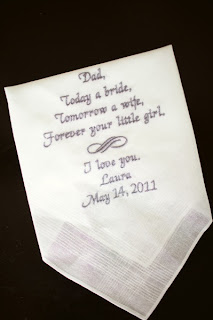 Dad,
Today a bride,
Tomorrow a wife,
Forever your little girl.
I love you.
Laura
May 14, 2011